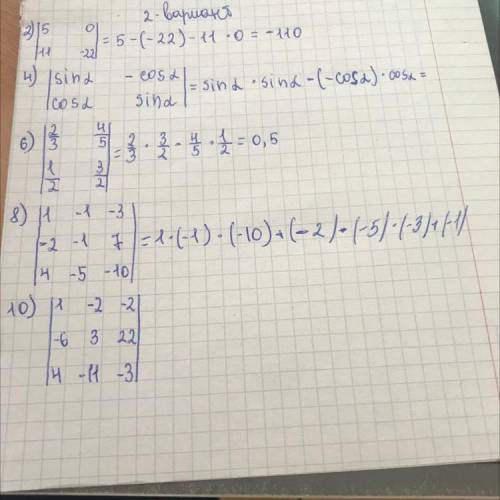 2-вариант
2) |5 0|
|11 -22| = 5-(-22)-11·0 = -110
4) |sinα -cosα|
|cosα sinα| = sinα·sinα-(-cosα)·cosα=
6) |2/3 4/5|
|1/2 3/2| = 2/3·3/2-4/5·1/2=0,5
8) |1 -1 -3|
|-2 -1 7| =1·(-1)·(-10)+(-2)·(-5)·(-3)+(-1)
|4 -5 -10|
10) |1 -2 -2|
|-6 3 22|
|4 -11 -3|